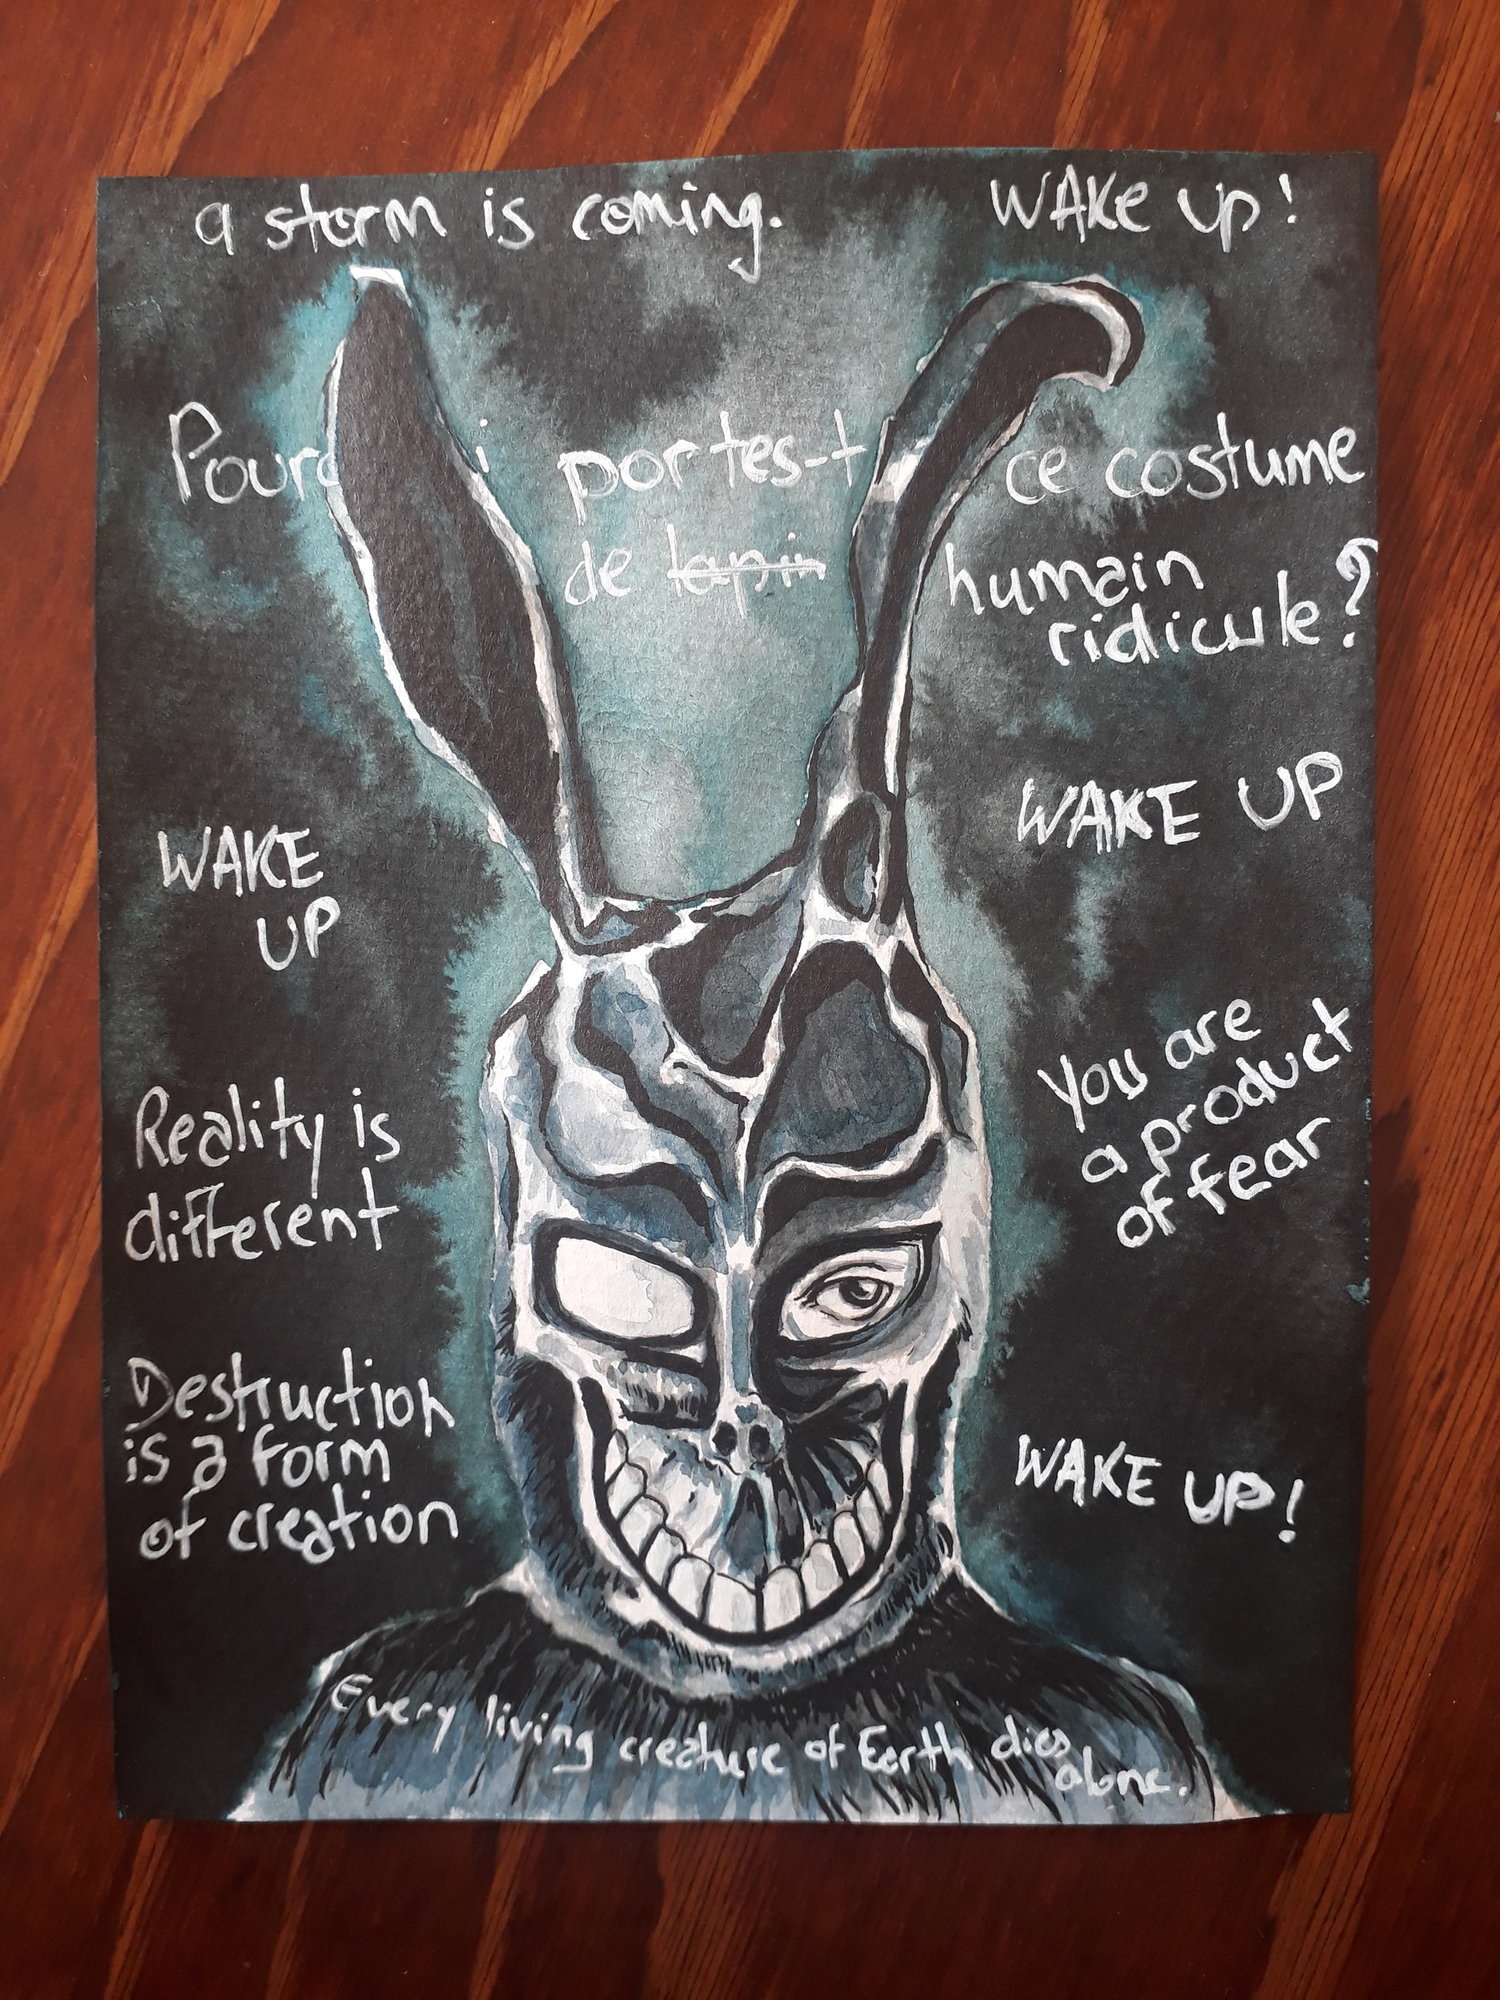 a storm is coming.
WAKe up!
Pour i portes-t ce costume
de lapin humain
ridicule?
WAKE UP
WAKE
UP
You are
a product
of fear
Reality is
different
Destruction
is a form
of creation
WAKE UP!
Every living creature of Earth dies
alone.